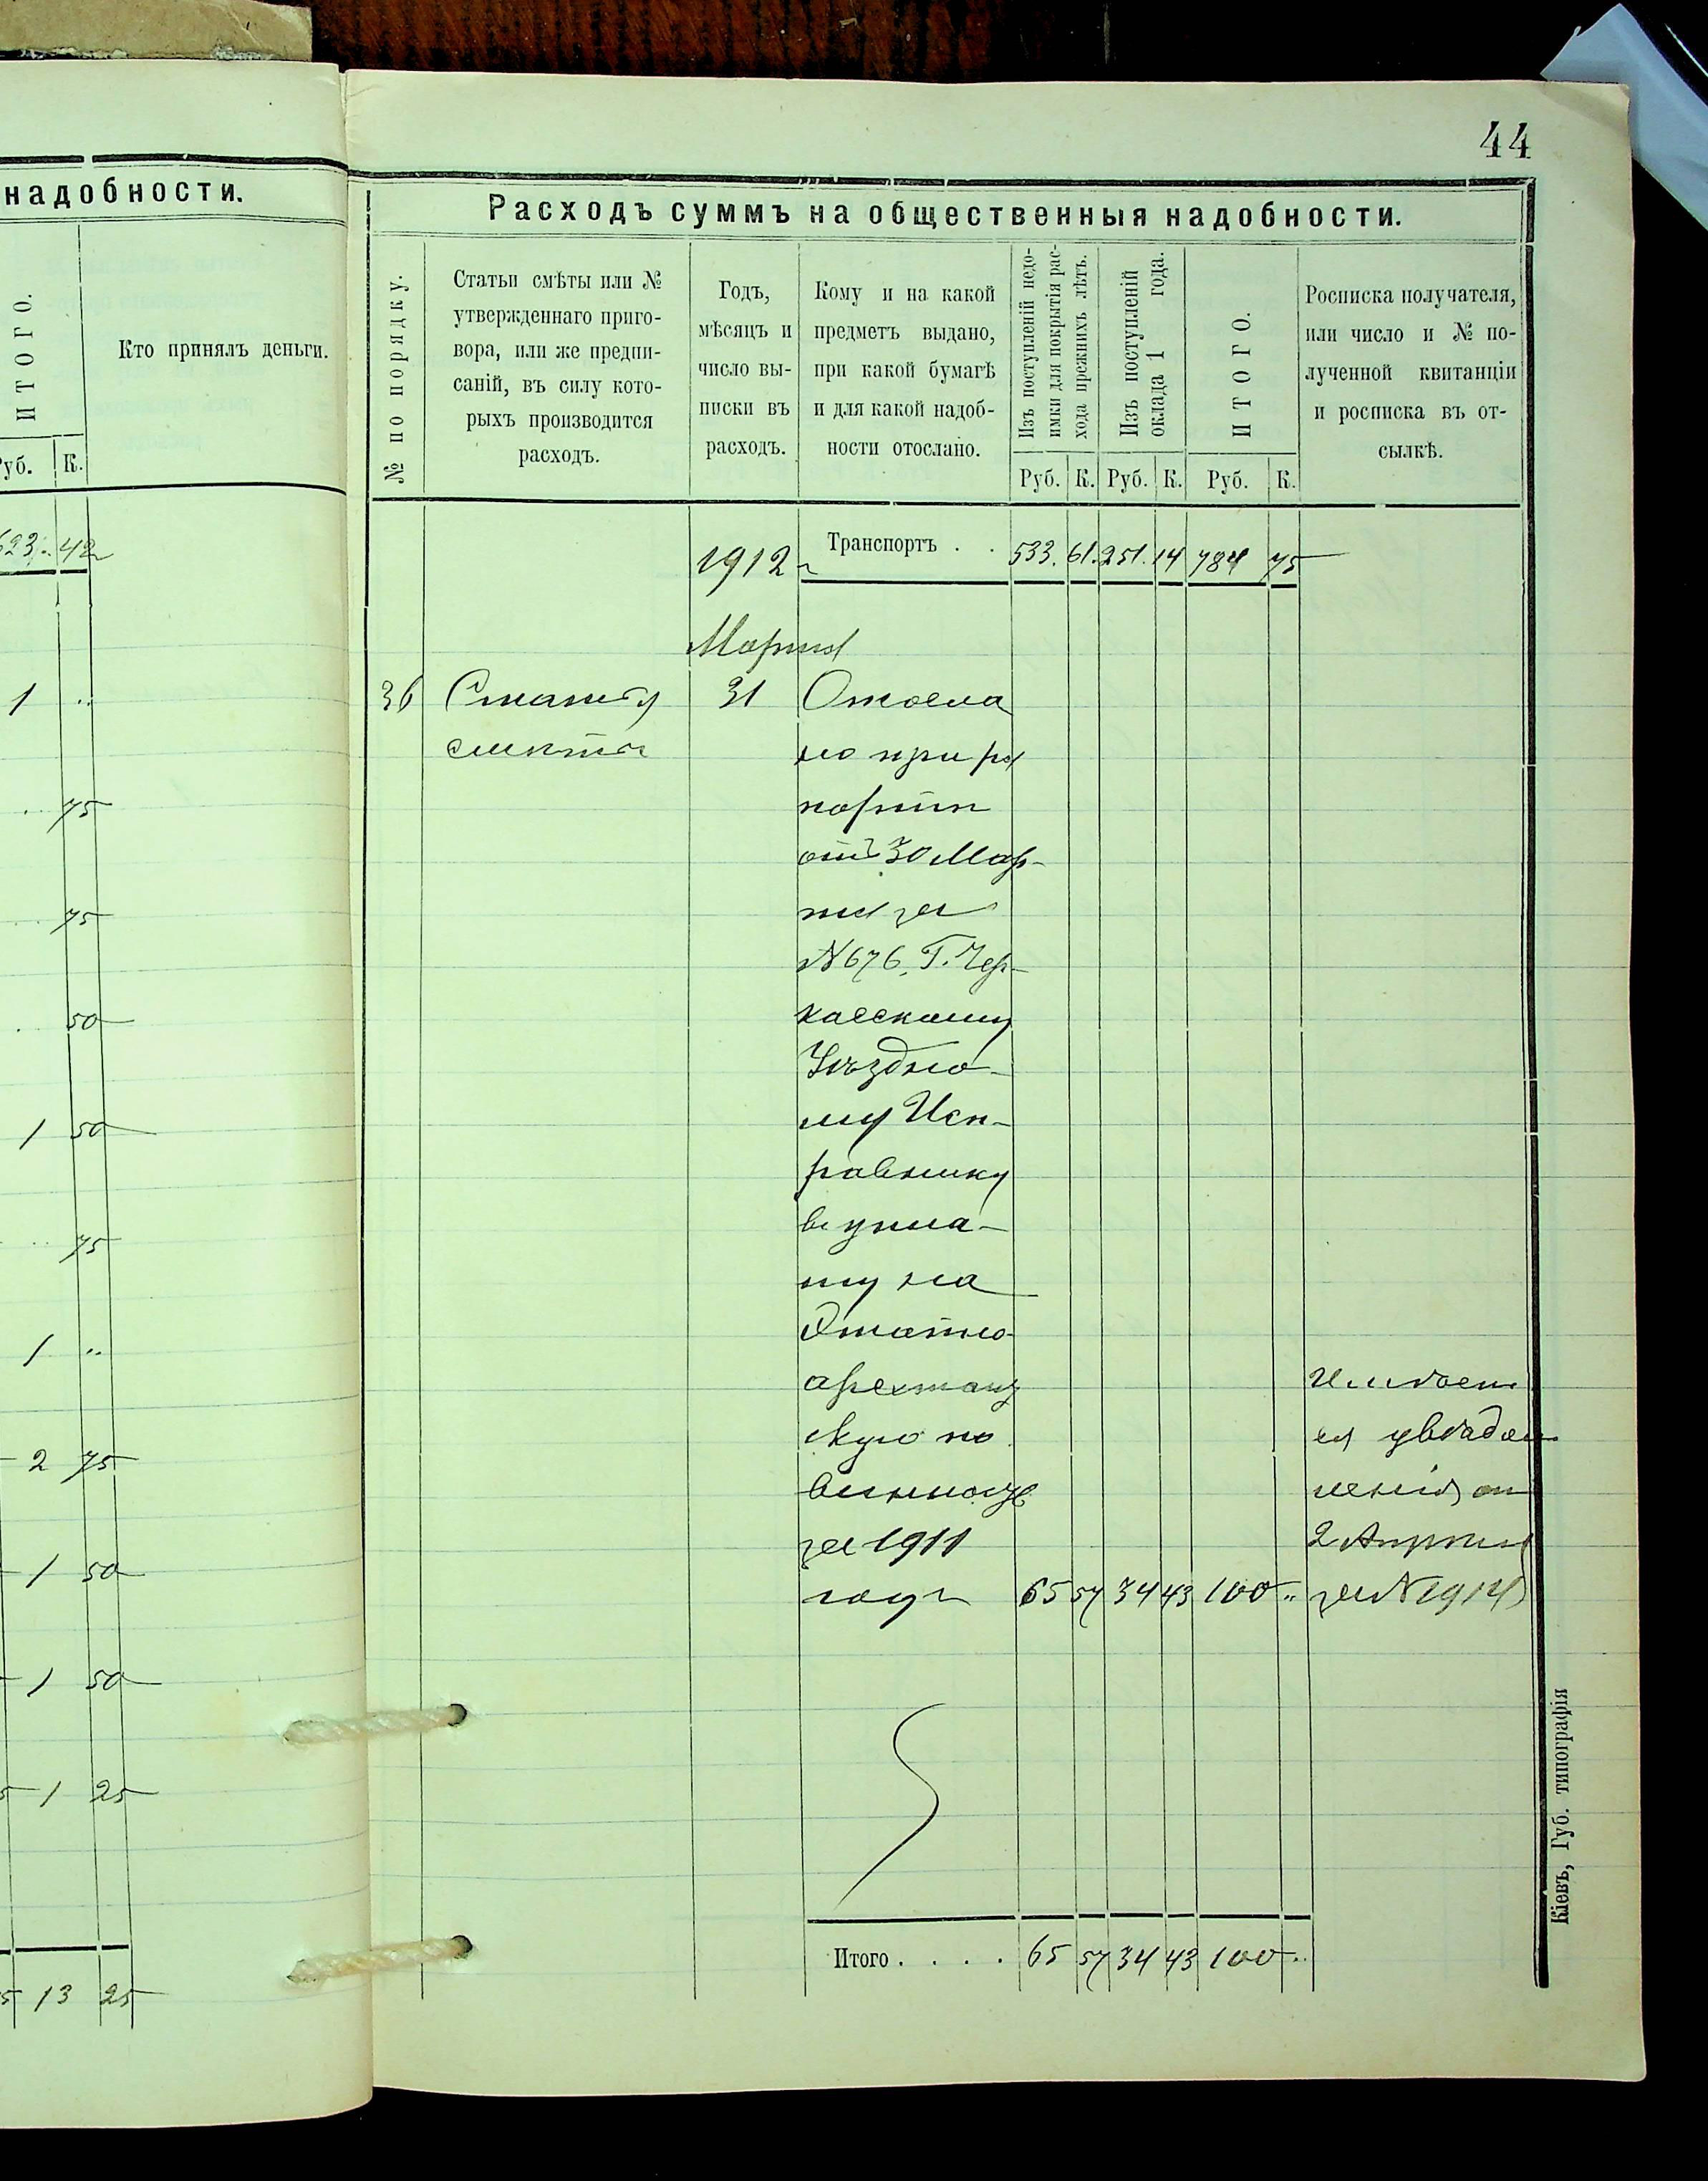 надобности.
ИТОГО.
Кто принялъ деньги.
Руб. К.
623 42
1 ..
.. 75
.. 75
. 50
1 50
.. 75
1 ..
2 75
1 50
1 50
1 25
13 25
44
Расходъ суммъ на общественныя надобности.
№ по порядку.
Статьи смѣты или №
утвержденнаго приго-
вора, или же предпи-
саній, въ силу кото-
рыхъ производится
расходъ.
Годъ,
мѣсяцъ и
число вы-
писки въ
расходъ.
Кому и на какой
предметъ выдано,
при какой бумагѣ
и для какой надоб-
ности отослано.
Изъ поступленій недо-
имки для покрытія рас-
хода прежнихъ лѣтъ.
Изъ поступленій
оклада 1 года.
ИТОГО.
Росписка получателя,
или число и № по-
лученной квитанціи
и росписка въ от-
сылкѣ.
Руб. К. Руб. К. Руб. К.
1912 г Транспортъ . . 533. 61. 251. 14 784 75
Марта
36 Статья 31 Отосла
смѣты но при ра
портѣ
отъ 30 Мар-
та за
№ 676, Г. Чер-
касскому
Уѣздно-
му Исп-
равнику
въ упла-
ту на
Этапно
арестанд
скую по
винность
за 1911
годъ 65 57 34 43 100 ..
Имѣет
ся увѣдом
леніе от
2 Апрѣля
за № 1914
Итого . . . . 65 57 34 43 100 ..
Кіевъ, Губ. типографія